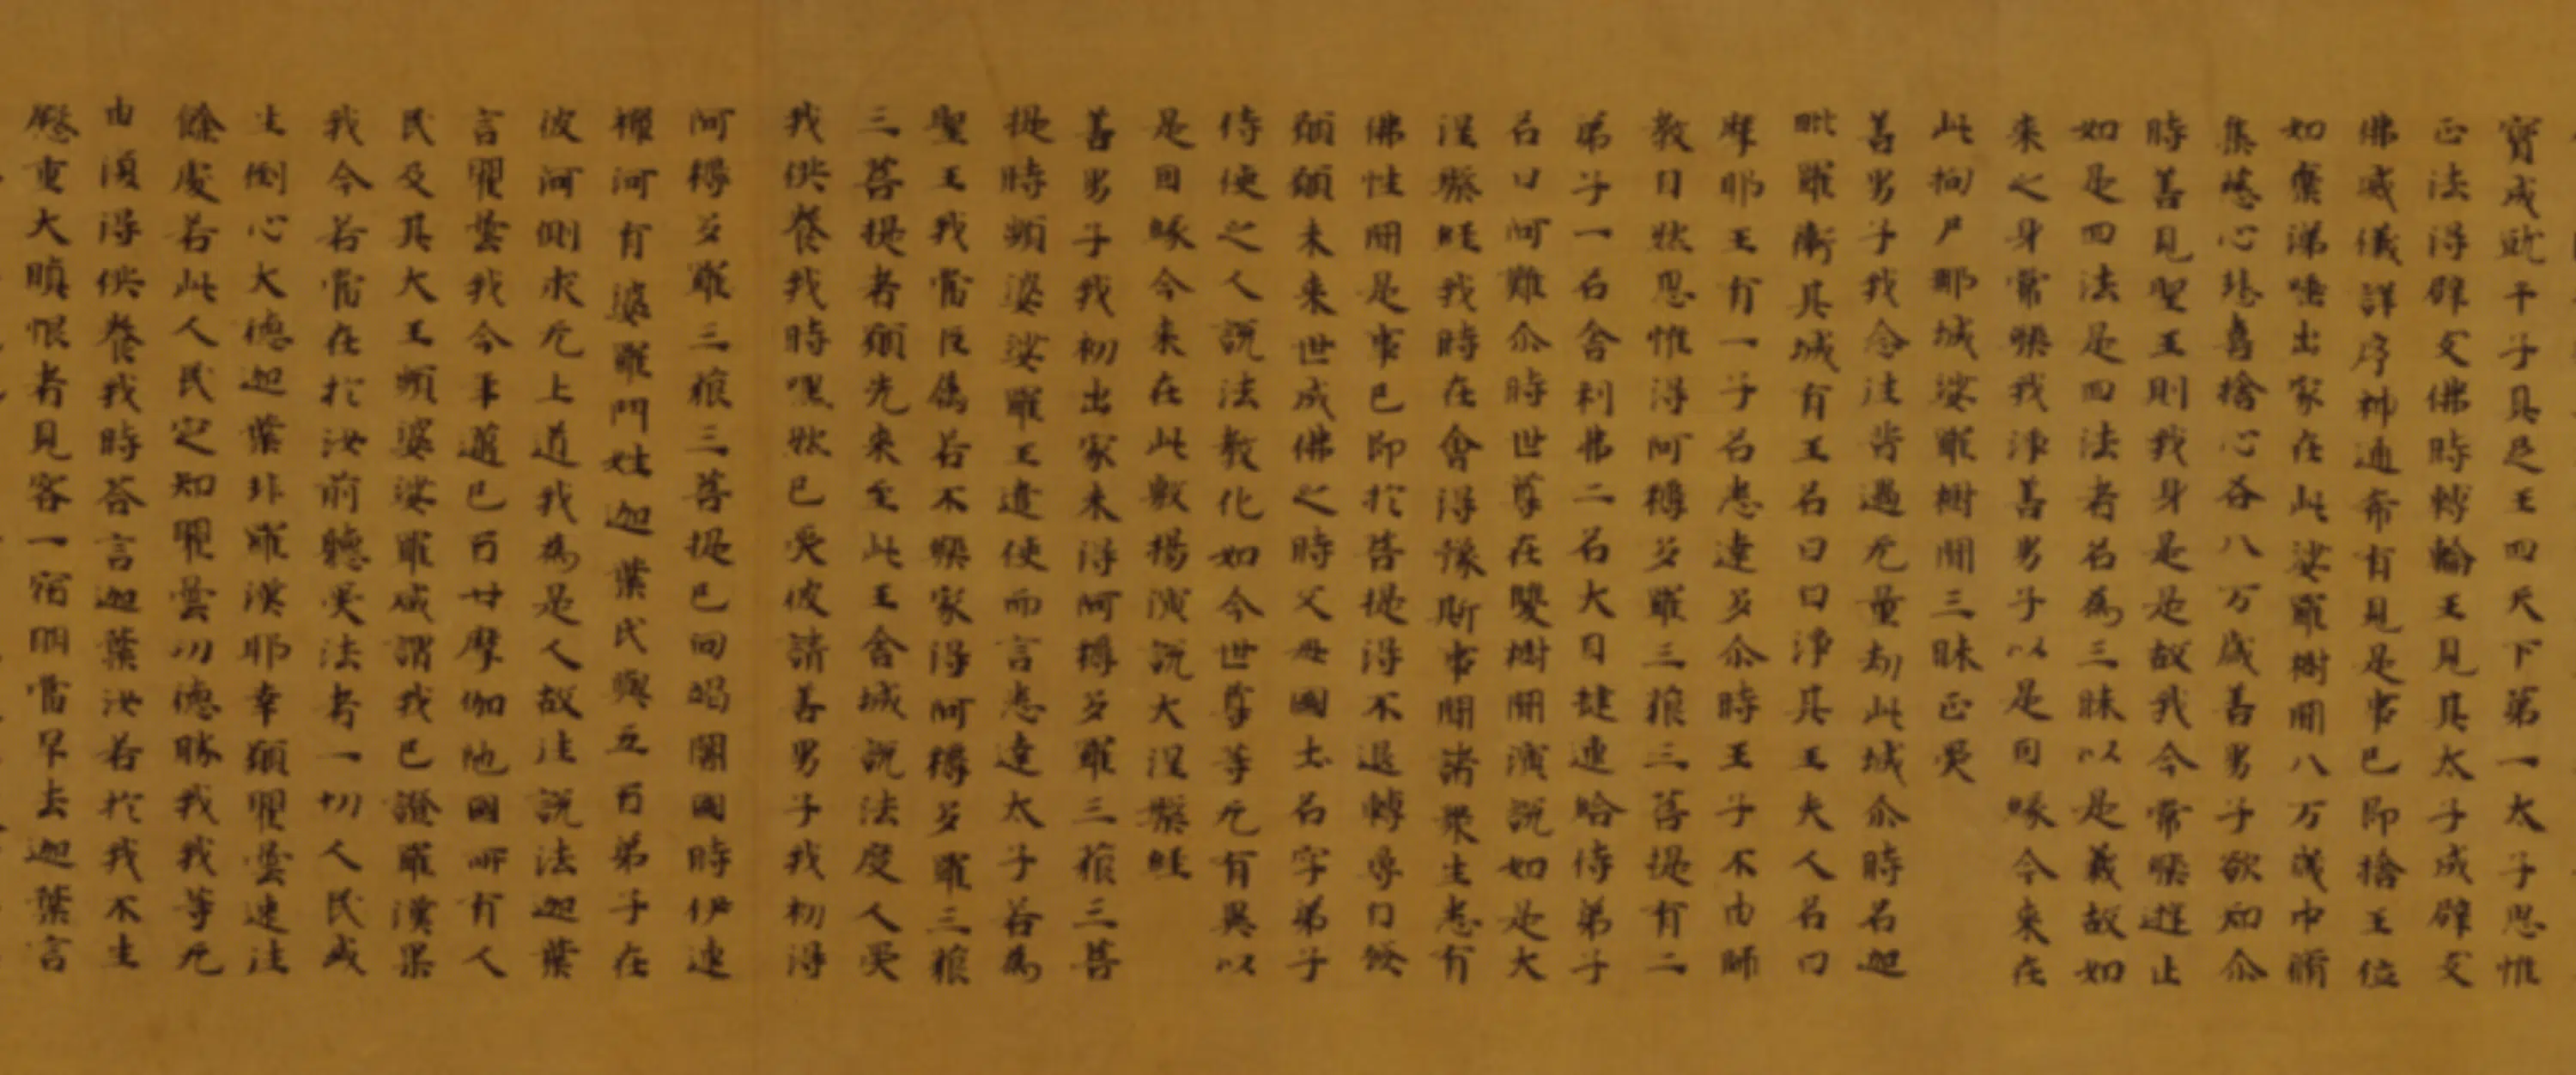 寶成就千子具足王四天下第一太子思惟
正法得辟支佛時轉輪王見其太子成辟支
佛威儀詳序神通希有見是事已即捨王位
如棄涕唾出家在此娑羅樹間八万歲中脩
集慈心悲喜捨心各八万歲善男子欲知尒
時善見聖王則我身是是故我今常樂遊止
如是四法是四法者名為三昧以是義故如
來之身常樂我淨善男子以是因緣今來在
此拘尸那城娑羅樹間三昧正受
善男子我念往昔過无量劫此城尒時名迦
毗羅衛其城有王名曰白淨其王夫人名曰
摩耶王有一子名悉達多尒時王子不由師
教自然思惟得阿耨多羅三藐三菩提有二
弟子一名舍利弗二名大目揵連給侍弟子
名曰阿難尒時世尊在雙樹間演說如是大
涅槃經我時在會得豫斯事聞諸眾生悉有
佛性聞是事已即於菩提得不退轉尋自發
願願未來世成佛之時父母國土名字弟子
侍使之人說法教化如今世尊等无有異以
是因緣今來在此敷揚演說大涅槃經
善男子我初出家未得阿耨多羅三藐三菩
提時頻婆娑羅王遣使而言悉達太子若為
聖王我當臣屬若不樂家得阿耨多羅三藐
三菩提者願先來至此王舍城說法度人受
我供養我時嘿然已受彼請善男子我初得
阿耨多羅三藐三菩提已向竭闍國時伊連
禪河有婆羅門姓迦葉氏與五百弟子在
彼河側求无上道我為是人故往說法迦葉
言瞿曇我今年邁已百廿摩伽陀國所有人
民及其大王頻婆娑羅咸謂我已證羅漢果
我今若當在於汝前聽受法者一切人民或
生倒心大德迦葉非羅漢耶幸願瞿曇速往
餘處若此人民定知瞿曇功德勝我我等无
由復得供養我時答言迦葉汝若於我不生
慇重大瞋恨者見容一宿明當早去迦葉言